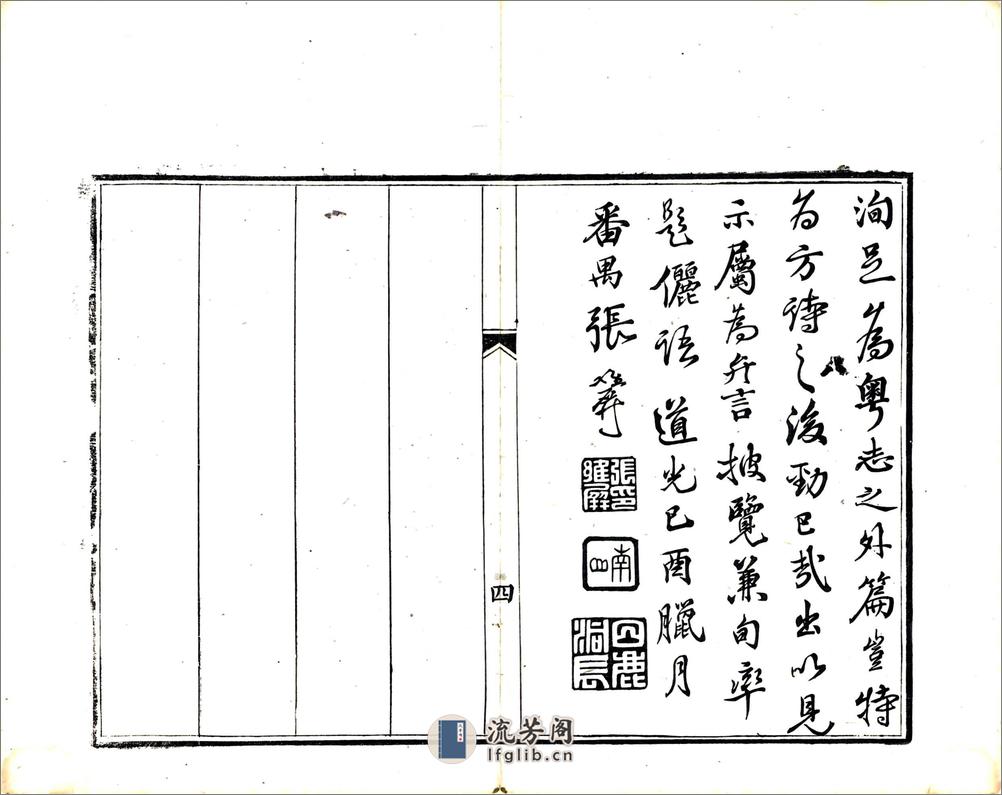 洵足為粵志之外篇豈特
为方詩之後勁已哉出以見
示屬為弁言披覽兼旬率
題儷語 道光己酉臘月
番禺張維屏
張印維屏
南山
白鹿洞長
四
流芳阁
lfglib.cn